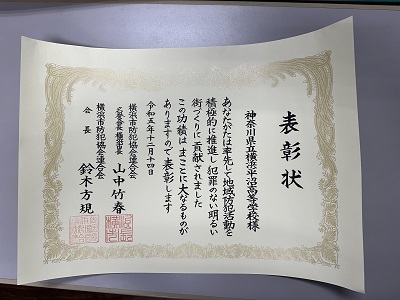 表彰状
神奈川県立横浜平沼高等学校様
あなたがたは率先して地域防犯活動を
積極的に推進し犯罪のない明るい
街づくりに貢献されました
この功績はまことに大なるものが
ありますので表彰します
令和五年十二月十四日
横浜市防犯協会連合会
名誉会長 横浜市長 山中竹春
横浜市防犯協会連合会
会長 鈴木方規